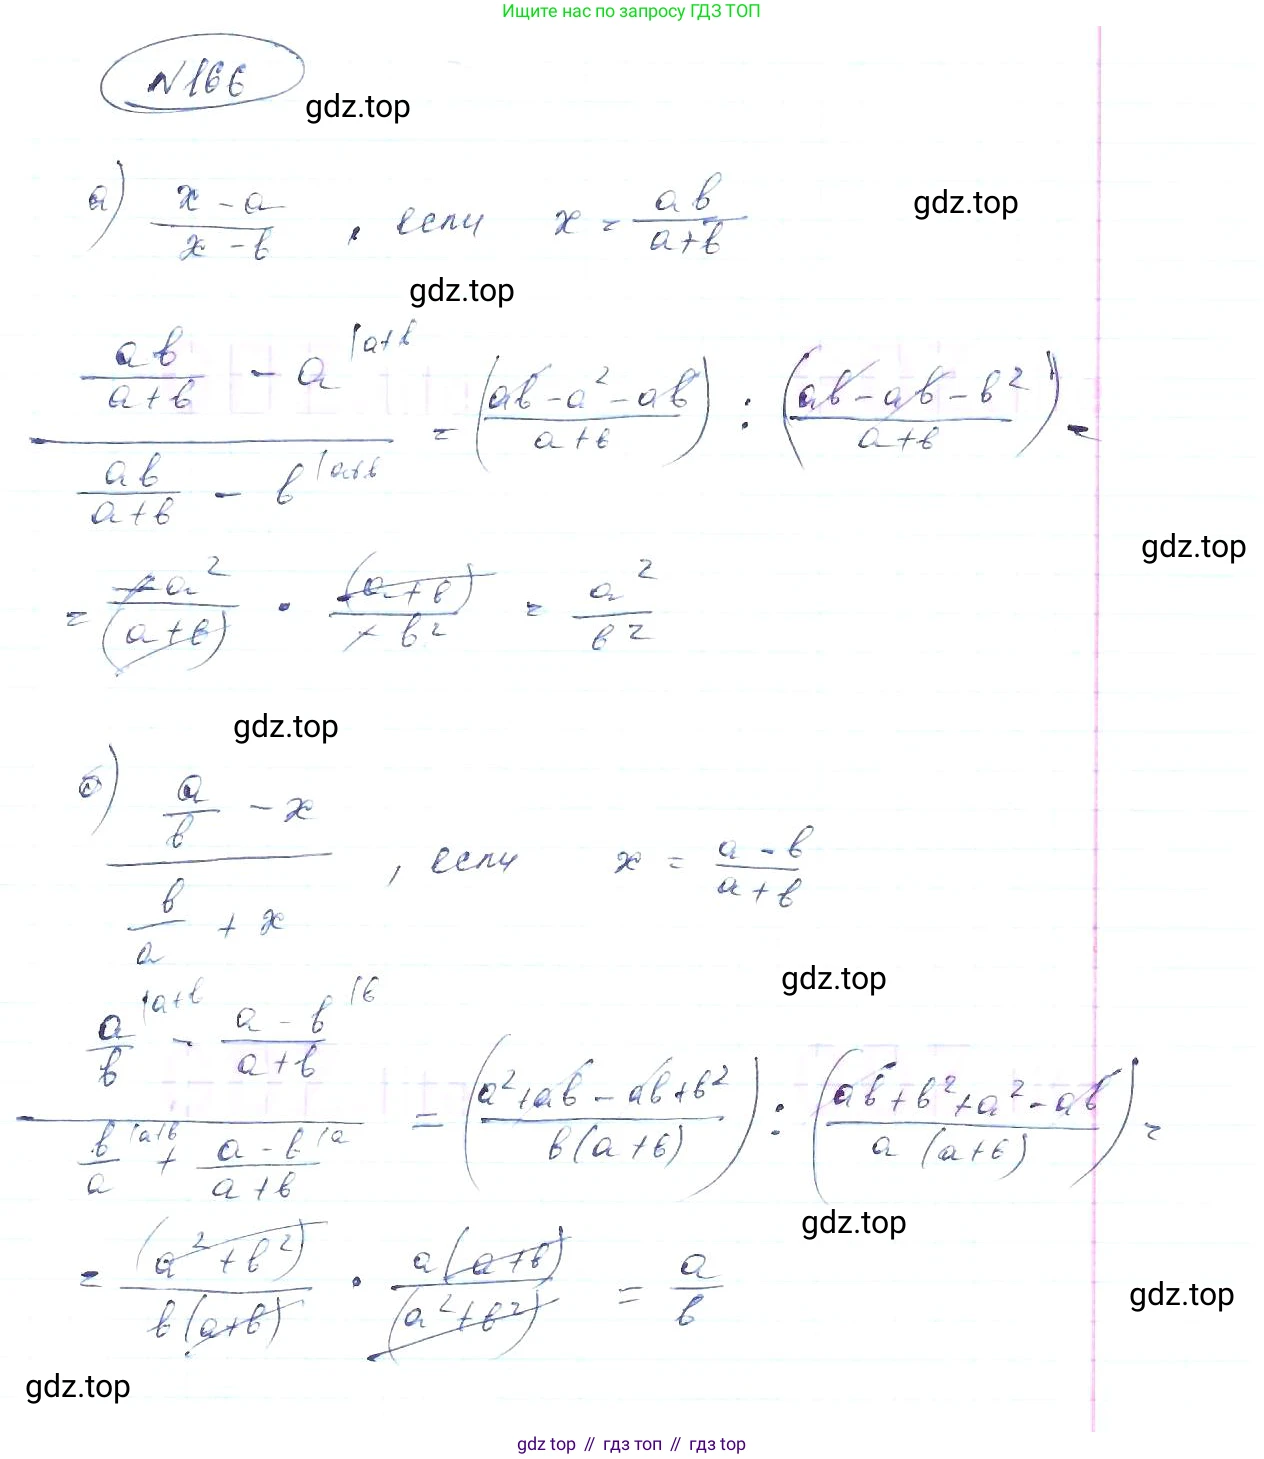 Ищите нас по запросу ГДЗ ТОП
N166
gdz.top
а) (x - a)/(x - b), если x = ab/(a+b)
gdz.top
gdz.top
(ab/(a+b) - a |a+b)/(ab/(a+b) - b |a+b) = ((ab - a² - ab)/(a+b)) : ((ab - ab - b²)/(a+b)) =
gdz.top
= -a²/(a+b) · (a+b)/-b² = a²/b²
gdz.top
б) (a/b - x)/(b/a + x), если x = (a - b)/(a + b)
gdz.top
(a/b |a+b - (a - b)/(a+b) |b)/(b/a |a+b + (a - b)/(a+b) |a) = ((a² + ab - ab + b²)/(b(a+b))) : ((ab + b² + a² - ab)/(a(a+b))) =
gdz.top
= (a² + b²)/(b(a+b)) · a(a+b)/(a² + b²) = a/b
gdz.top
gdz.top
gdz top // гдз топ // gdz top